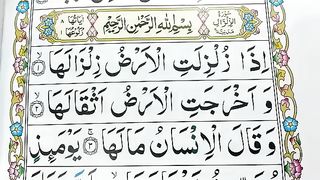 سُوْرَةُ الزِّلْزَالِ مَدَنِيَّةٌ
بِسْمِ اللّٰهِ الرَّحْمٰنِ الرَّحِيْمِ
اِذَا زُلْزِلَتِ الْاَرْضُ زِلْزَالَهَا ۙ﴿۱﴾
وَ اَخْرَجَتِ الْاَرْضُ اَثْقَالَهَا ۙ﴿۲﴾
وَقَالَ الْاِنْسَانُ مَالَهَا ۚ﴿۳﴾ يَوْمَئِذٍ